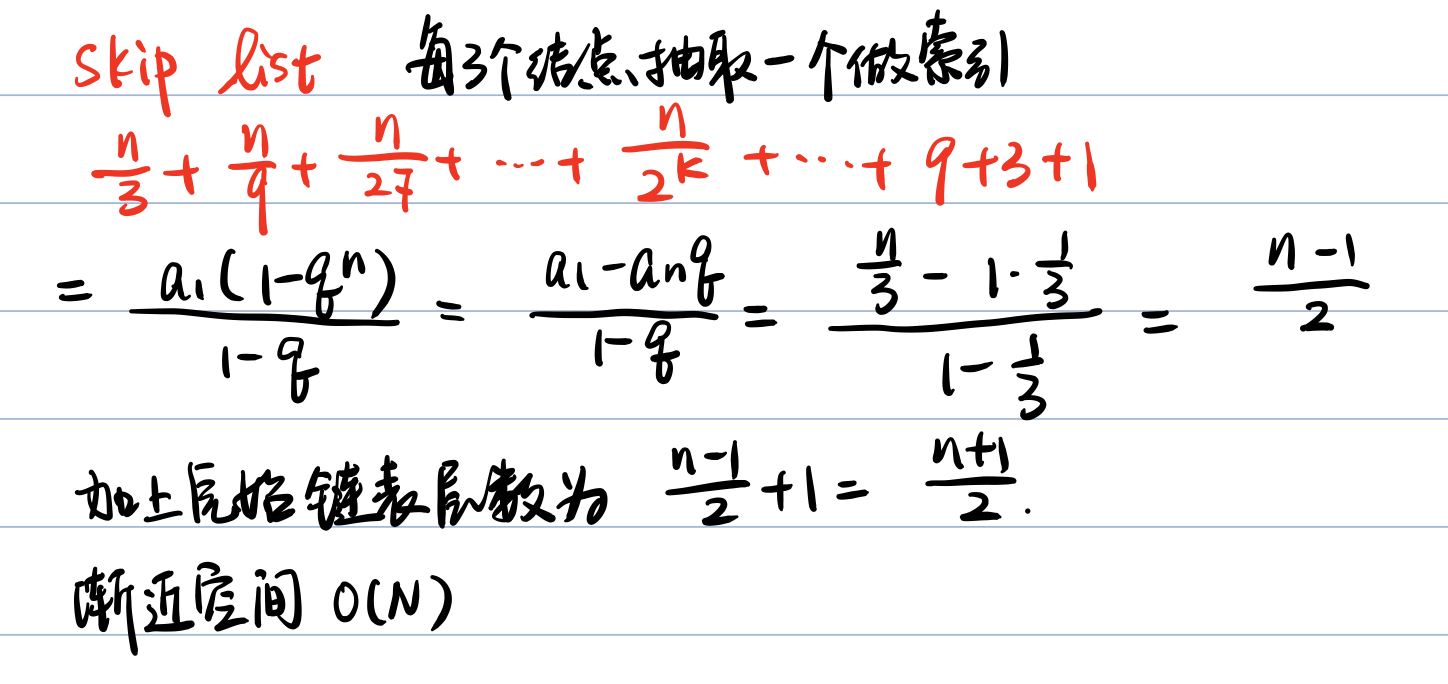 skip list 每3个结点抽取一个做索引
n/3 + n/9 + n/27 + ... + n/2^k + ... + 9+3+1
= a₁(1-qⁿ)/(1-q) = (a₁-aₙq)/(1-q) = (n/3 - 1·1/3)/(1 - 1/3) = (n-1)/2
加上原始链表层数为 (n-1)/2 + 1 = (n+1)/2.
渐近空间 O(N)